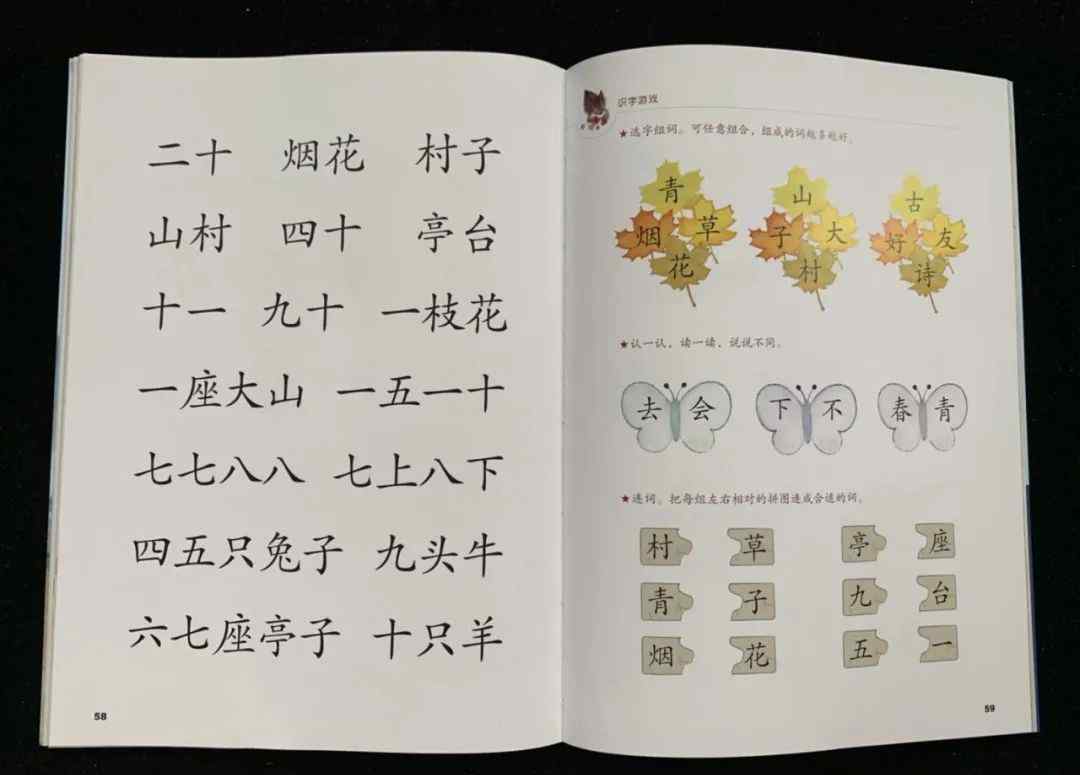 二十 烟花 村子
山村 四十 亭台
十一 九十 一枝花
一座大山 一五一十
七七八八 七上八下
四五只兔子 九头牛
六七座亭子 十只羊
58
识字游戏
★选字组词。可任意组合，组成的词越多越好。
青 山 古
烟 草 子 大 好 友
花 村 诗
★认一认，读一读，说说不同。
去 会 下 不 春 青
★连词。把每组左右相对的拼图连成合适的词。
村 草 亭 座
青 子 九 台
烟 花 五 一
59